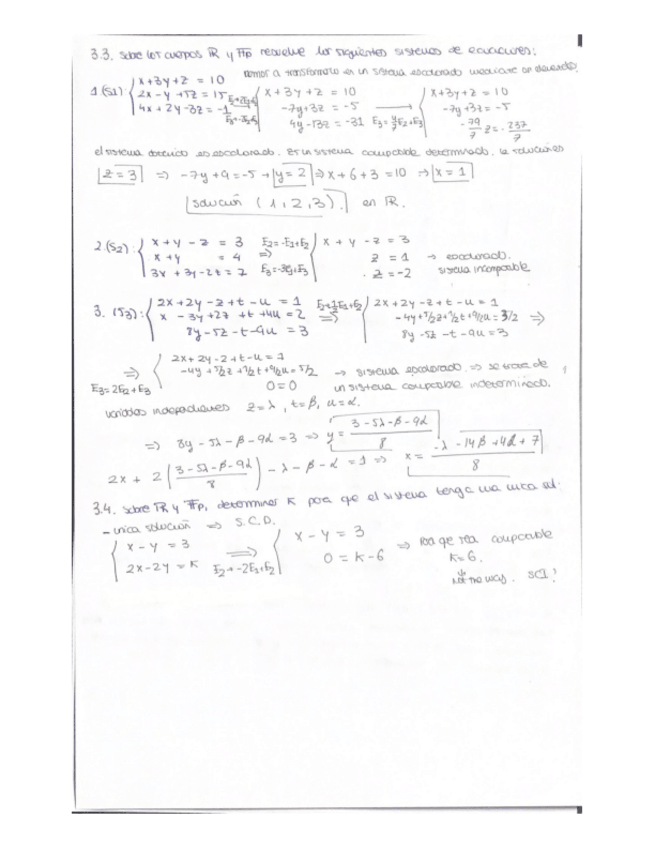 3.3. Sobre los cuerpos ℝ y 𝔽p resuelve los siguientes sistemas de ecuaciones:
vamos a transformarlo en un sistema escalonado mediante
1 (S1): { x+3y+z = 10 { x+3y+z = 10 { x+3y+z = 10
2x-y+5z = 15 -7y+3z = -5 → -7y+3z = -5
4x+2y-3z = -1 4y-13z = -31 E3= E2+E3 -79/7 z = -237/7
el sistema obtenido es escalonado. Es un sistema compatible determinado. la solución es
z=3 ⇒ -7y+9 = -5 → y=2 ⇒ x+6+3 = 10 → x=1
solución (1,2,3). en ℝ.
2 (S2): { x+y-z = 3 E2=-E1+E2 { x+y-z = 3
x+y = 4 ⇒ z = 1 → escalonado.
3x+3y-2z = 7 E3=-3E1+E3 z = -2 sistema incompatible
3. (S3): { 2x+2y-z+t-u = 1 { 2x+2y-z+t-u = 1
x-3y+2z+t+4u = 2 ⇒ -4y+5/2z+1/2t+9/2u = 3/2 ⇒
8y-5z-t-9u = 3 8y-5z-t-9u = 3
⇒ { 2x+2y-z+t-u = 1
-4y+5/2z+1/2t+9/2u = 5/2 → sistema escalonado. ⇒ se trata de
E3=2E2+E3 0=0 un sistema compatible indeterminado.
variables independientes z=λ, t=β, u=α.
⇒ 8y-5λ-β-9α = 3 ⇒ y = (3-5λ-β-9α)/8
2x + 2 ((3-5λ-β-9α)/8) - λ-β-α = 1 ⇒ x = (-λ-14β+4α+7)/8
3.4. Sobre ℝ y 𝔽p, determinar K para que el sistema tenga una única sol.
- única solución ⇒ S.C.D.
{ x-y = 3 ⇒ { x-y = 3
2x-2y = K E2→-2E1+E2 0 = K-6 ⇒ para que sea compatible
K=6.
SCI!